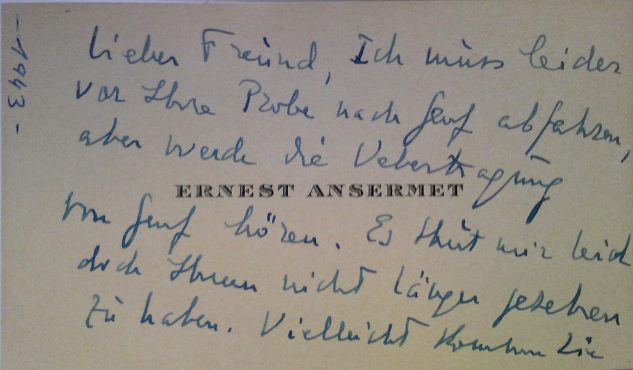 - 1943 -
Lieber Freund, Ich muss leider
vor Ihre Probe nach Genf abfahren,
aber werde die Uebertragung
ERNEST ANSERMET
von Genf hören. Es thut mir leid
doch Ihnen nicht länger gesehen
zu haben. Vielleicht kommen Sie